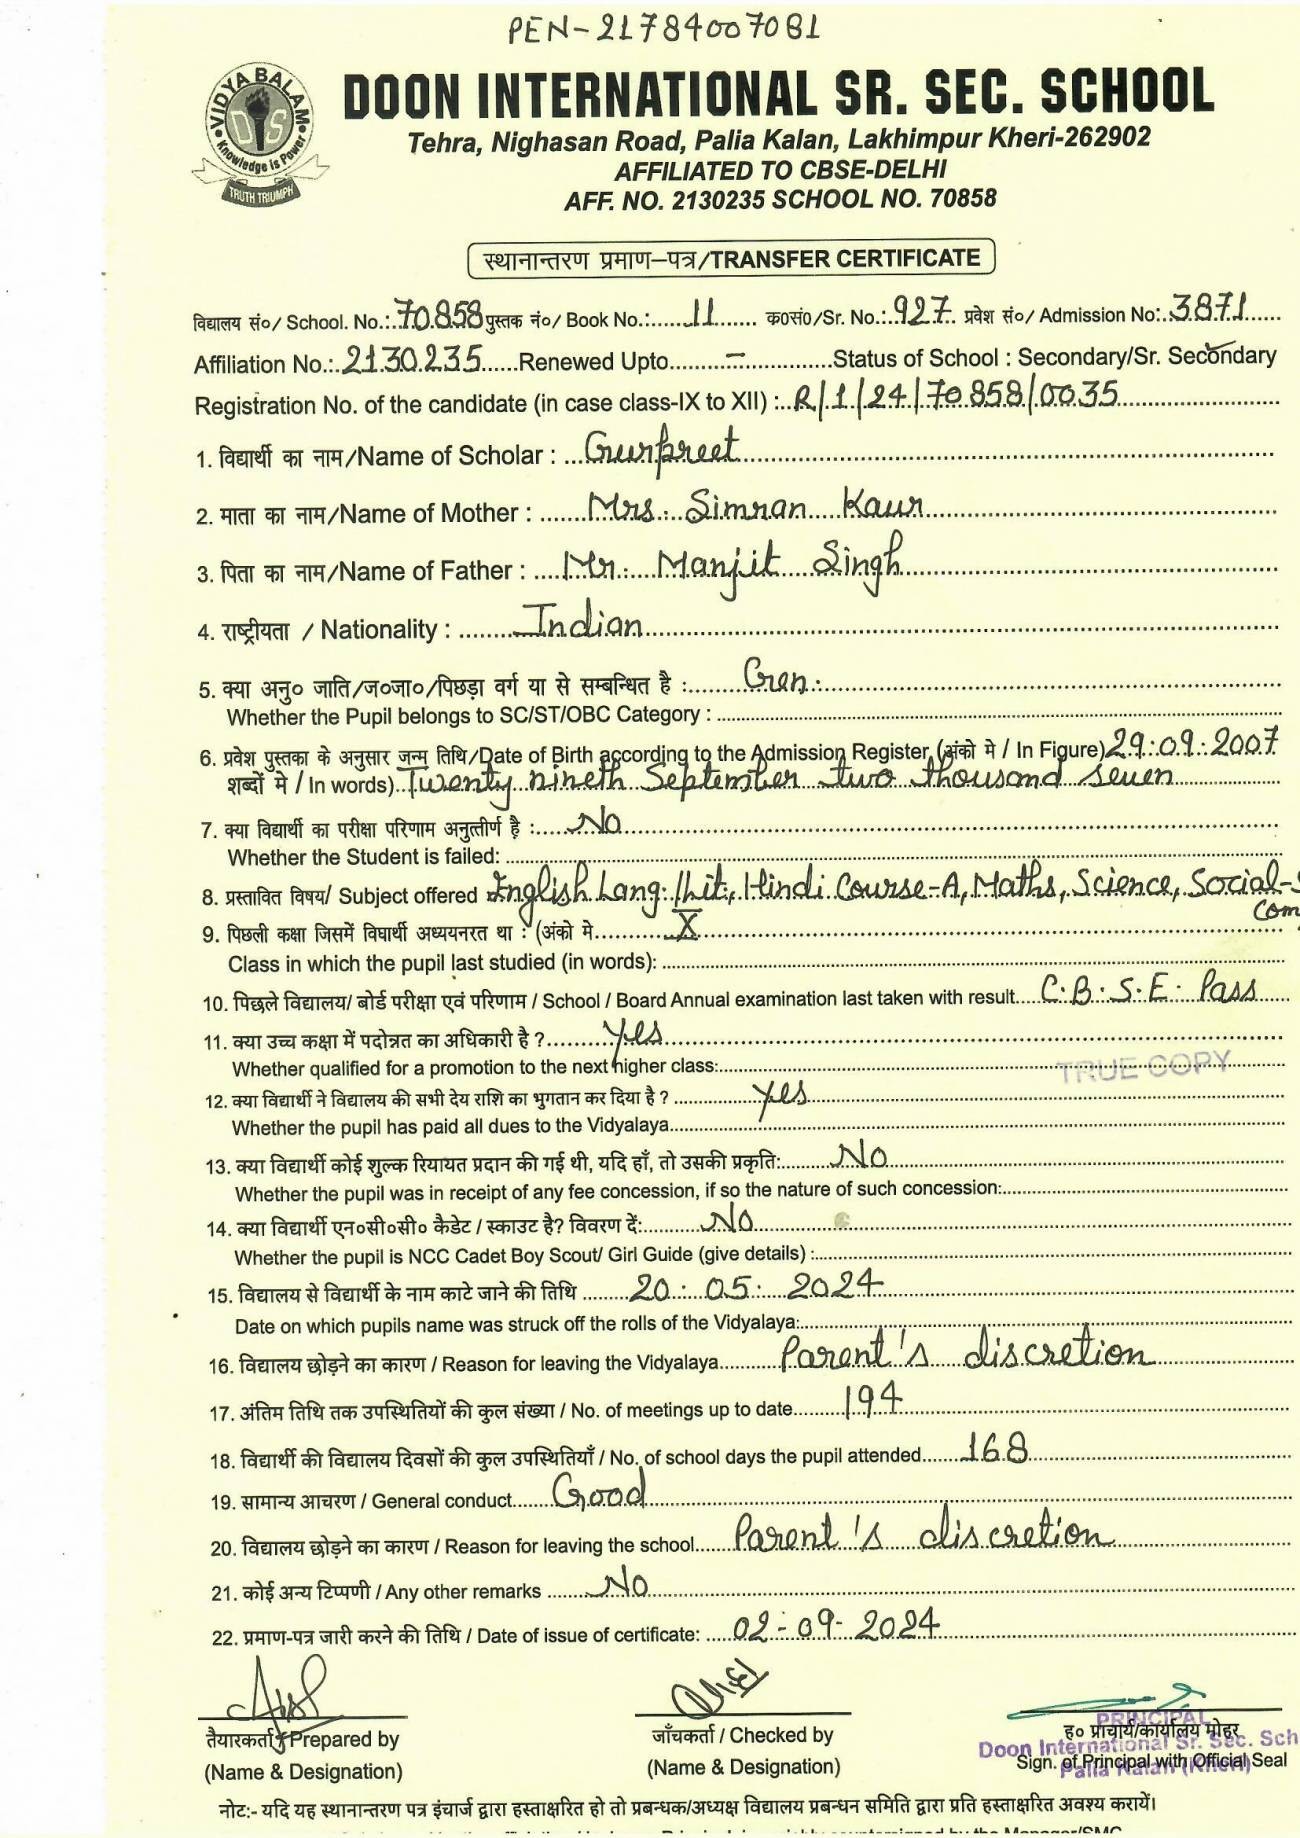 PEN-21784007081
VIDYA BALAM
DIS
Knowledge is Power
TRUTH TRIUMPH
DOON INTERNATIONAL SR. SEC. SCHOOL
Tehra, Nighasan Road, Palia Kalan, Lakhimpur Kheri-262902
AFFILIATED TO CBSE-DELHI
AFF. NO. 2130235 SCHOOL NO. 70858
स्थानान्तरण प्रमाण–पत्र/TRANSFER CERTIFICATE
विद्यालय सं०/ School. No.:.70858 पुस्तक नं०/ Book No.:......11...... क०सं०/Sr. No.:.927. प्रवेश सं०/ Admission No:.3871......
Affiliation No.:.2130235......Renewed Upto........–............Status of School : Secondary/Sr. Secondary
Registration No. of the candidate (in case class-IX to XII) :..R/1/24/70858/0035
1. विद्यार्थी का नाम/Name of Scholar : ...Gurpreet
2. माता का नाम/Name of Mother : .......Mrs. Simran Kaur
3. पिता का नाम/Name of Father : ....Mr. Manjit Singh
4. राष्ट्रीयता / Nationality : ........Indian
5. क्या अनु० जाति/ज०जा०/पिछड़ा वर्ग या से सम्बन्धित है :........Gen.
Whether the Pupil belongs to SC/ST/OBC Category :
6. प्रवेश पुस्तका के अनुसार जन्म तिथि/Date of Birth according to the Admission Register (अंको मे / In Figure) 29.09.2007
शब्दों मे / In words)..Twenty nineth September two thousand seven
7. क्या विद्यार्थी का परीक्षा परिणाम अनुत्तीर्ण है :.....No
Whether the Student is failed:
8. प्रस्तावित विषय/ Subject offered English Lang./Lit, Hindi Course-A, Maths, Science, Social-S
Com
9. पिछली कक्षा जिसमें विघार्थी अध्ययनरत था : (अंको मे...........X
Class in which the pupil last studied (in words):
10. पिछले विद्यालय/ बोर्ड परीक्षा एवं परिणाम / School / Board Annual examination last taken with result....C.B.S.E. Pass
11. क्या उच्च कक्षा में पदोन्नत का अधिकारी है ?..........yes
Whether qualified for a promotion to the next higher class:
TRUE COPY
12. क्या विद्यार्थी ने विद्यालय की सभी देय राशि का भुगतान कर दिया है ? ..............yes
Whether the pupil has paid all dues to the Vidyalaya
13. क्या विद्यार्थी कोई शुल्क रियायत प्रदान की गई थी, यदि हाँ, तो उसकी प्रकृति:........No
Whether the pupil was in receipt of any fee concession, if so the nature of such concession:
14. क्या विद्यार्थी एन०सी०सी० कैडेट / स्काउट है? विवरण दें:.........No
Whether the pupil is NCC Cadet Boy Scout/ Girl Guide (give details) :
15. विद्यालय से विद्यार्थी के नाम काटे जाने की तिथि ........20.05.2024
Date on which pupils name was struck off the rolls of the Vidyalaya:
16. विद्यालय छोड़ने का कारण / Reason for leaving the Vidyalaya..........Parent's discretion
17. अंतिम तिथि तक उपस्थितियों की कुल संख्या / No. of meetings up to date.........194
18. विद्यार्थी की विद्यालय दिवसों की कुल उपस्थितियाँ / No. of school days the pupil attended.......168
19. सामान्य आचरण / General conduct.......Good
20. विद्यालय छोड़ने का कारण / Reason for leaving the school.......Parent's discretion
21. कोई अन्य टिप्पणी / Any other remarks ........No
22. प्रमाण-पत्र जारी करने की तिथि / Date of issue of certificate: .....02-09-2024
तैयारकर्ता / Prepared by
(Name & Designation)
जाँचकर्ता / Checked by
(Name & Designation)
PRINCIPAL
ह० प्राचार्य/कार्यालय मोहर
Doon International Sr. Sec. Sch
Sign. of Principal with Official Seal
Palia Kalan (Kheri)
नोटः- यदि यह स्थानान्तरण पत्र इंचार्ज द्वारा हस्ताक्षरित हो तो प्रबन्धक/अध्यक्ष विद्यालय प्रबन्धन समिति द्वारा प्रति हस्ताक्षरित अवश्य करायें।